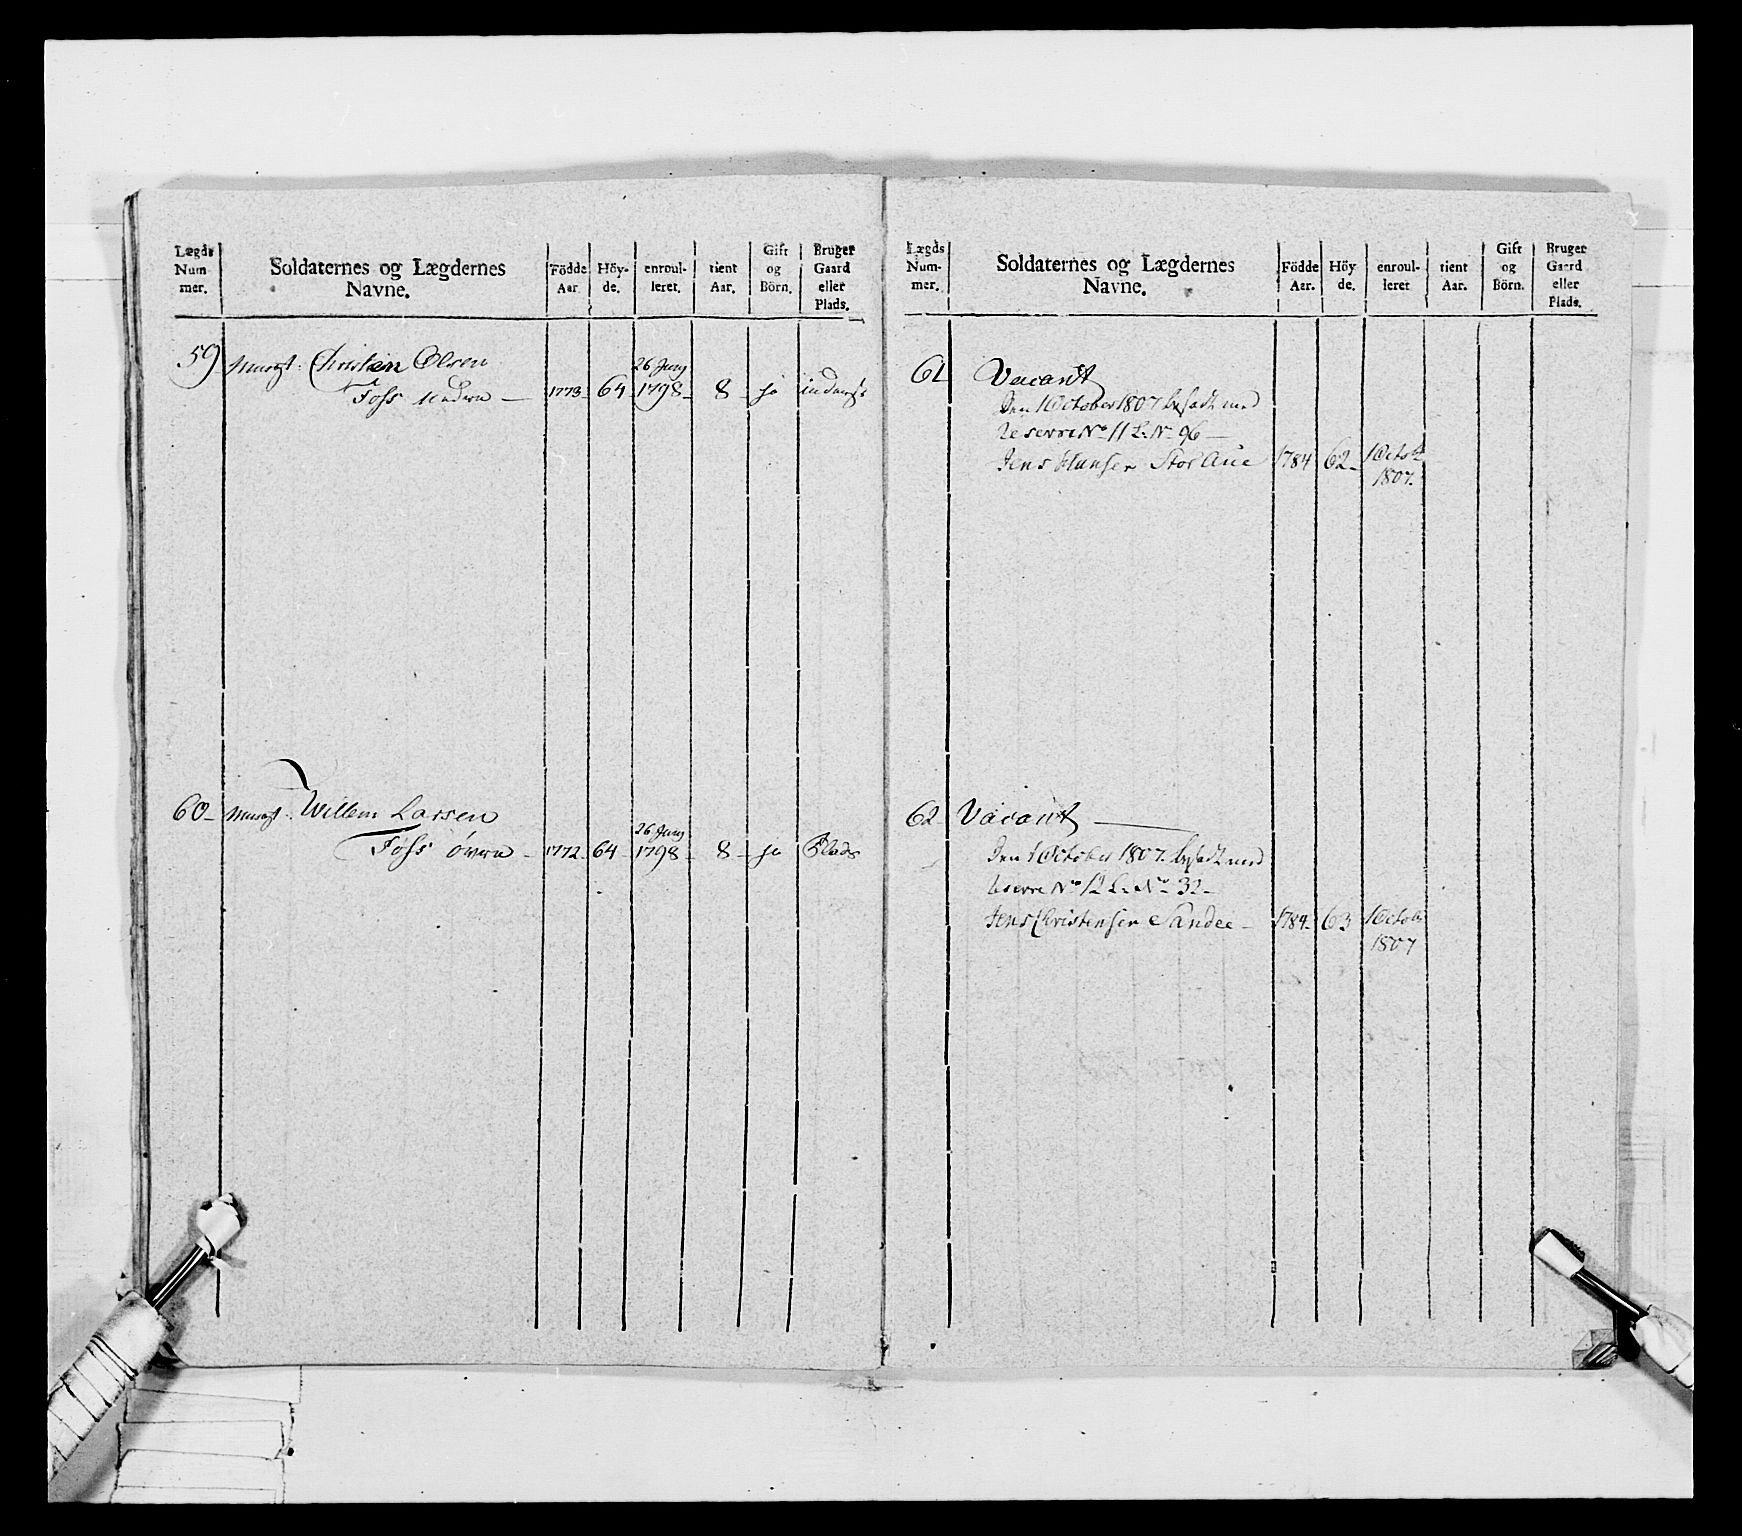 Lægds Num- mer.
Soldaternes og Lægdernes Navne.
Födde Aar
Höy- de.
enroul- leret.
tient Aar.
Gift og Börn.
Bruger Gaard eller Plads.
59 Musqt: Christen Olsen
26 Juny
Foss Nedre — 1773 64 1798 8 ja inderst
60 Musqt: Willem Larsen
26 Juny
Foss övre 1772 64 1798 8 ja Plads
Lægds Num- mer.
Soldaternes og Lægdernes Navne.
Födde Aar.
Höy de.
enroul- leret
tient Aar.
Gift og Börn.
Bruger Gaard eller Plads.
61 Vacant
Den 1 October 1807 besadt med
Reserve No 11 L: No 96 —
Jens Hansen Stor Aue 1784 62 1 Octob
1807.
62 Vacant —
Den 1 October 1807. besadt med
Reserve No 12 L: No 32
Jens Christensen Sandee 1784 63 1 Octob
1807